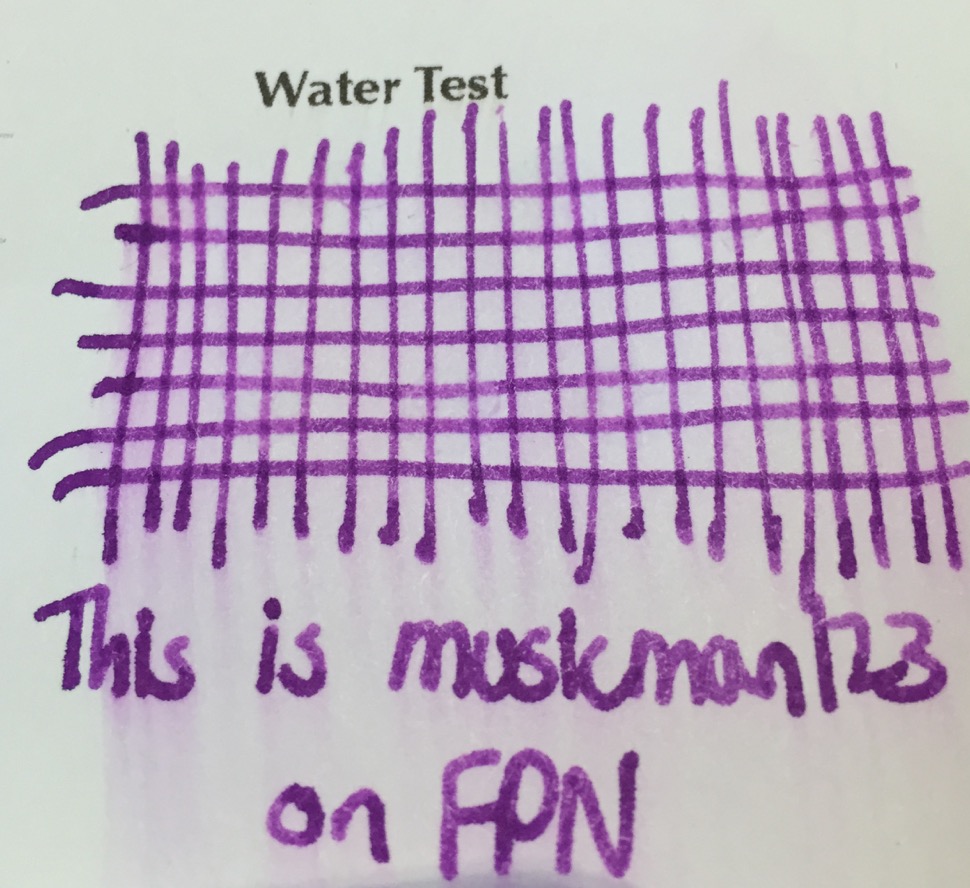 Water Test
This is muskman123
on FPN